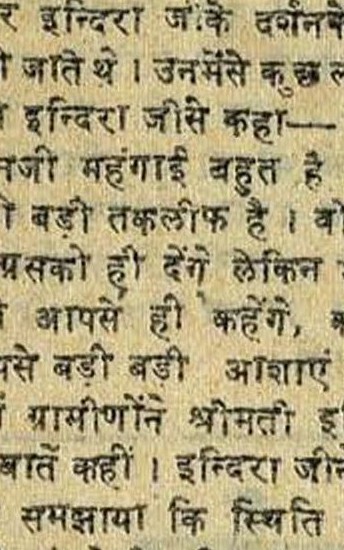 र इन्दिरा जीके दर्शनके
ी जाते थे । उनमेंसे कुछ ल
ा इन्दिरा जीसे कहा—
नजी महंगाई बहुत है
ी बड़ी तकलीफ है । वो
ग्रसको ही देंगे लेकिन
ी आपसे ही कहेंगे,
पसे बड़ी बड़ी आशाएं
ं ग्रामीणोंने श्रीमती इ
बातें कहीं । इन्दिरा जीने
समझाया कि स्थिति